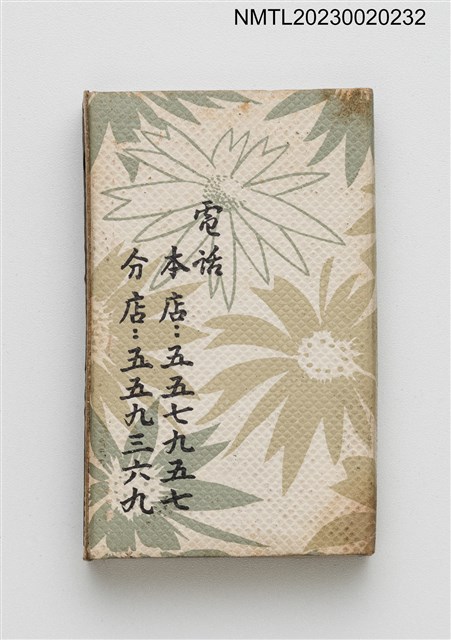 NMTL20230020232
電話
本店：五五七九五七
分店：五五九三六九